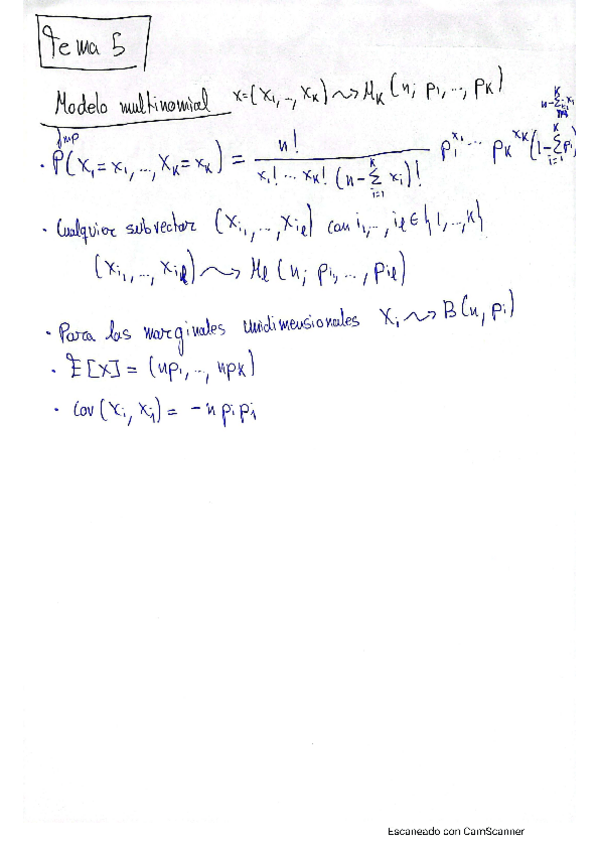 Tema 5
Modelo multinomial X=(X₁,..,X_K) ⇝ M_K(n; p₁,..., p_K)
fmp
· P(X₁=x₁,..., X_K=x_K) = n! / (x₁! ... x_K! (n-Σ_{i=1}^{K} x_i)!) p₁^{x₁} ... p_K^{x_K} (1-Σ_{i=1}^{K} p_i)^{n-Σ_{i=1}^{K} x_i}
· Cualquier subvector (X_{i₁},..., X_{iℓ}) con i₁,.., iℓ ∈ {1,...,K}
(X_{i₁},..., X_{iℓ}) ⇝ M_ℓ (n; p_{i₁},..., p_{iℓ})
· Para las marginales unidimensionales X_i ⇝ B(n, p_i)
· E[X] = (np₁,..., np_K)
· Cov(X_i, X_j) = -n p_i p_j
Escaneado con CamScanner